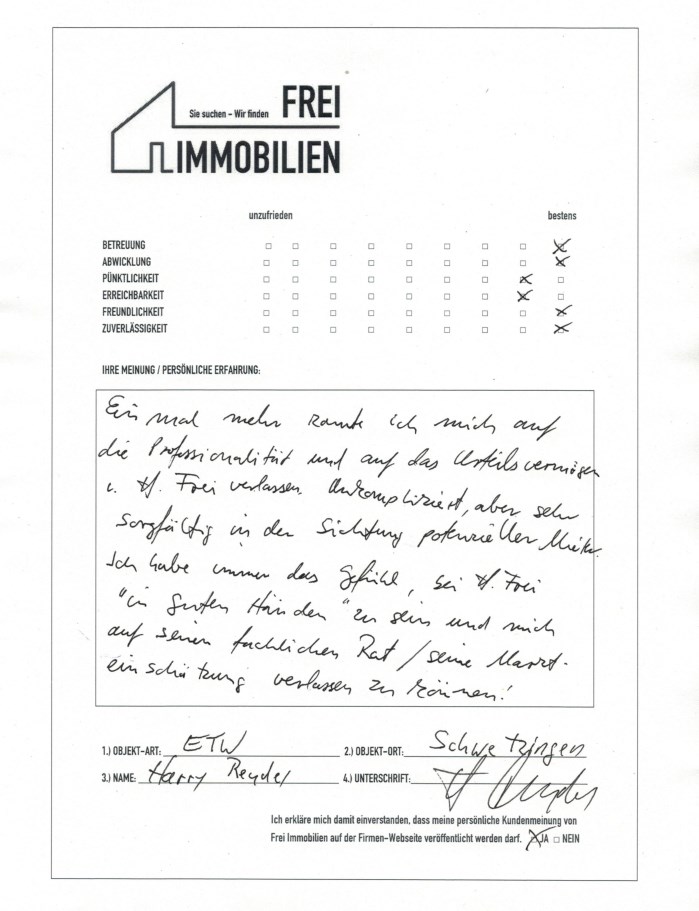 Sie suchen – Wir finden FREI
IMMOBILIEN
unzufrieden bestens
BETREUUNG
ABWICKLUNG
PÜNKTLICHKEIT
ERREICHBARKEIT
FREUNDLICHKEIT
ZUVERLÄSSIGKEIT
IHRE MEINUNG / PERSÖNLICHE ERFAHRUNG:
Ein mal mehr konnte ich mich auf
die Professionalität und auf das Urteilsvermögen
v. H. Frei verlassen. Unkompliziert, aber sehr
sorgfältig in der Sichtung potenzieller Mieter.
Ich habe immer das Gefühl, bei H. Frei
"in guten Händen" zu sein und mich
auf seinen fachlichen Rat / seine Markt-
einschätzung verlassen zu können!
1.) OBJEKT-ART: ETW 2.) OBJEKT-ORT: Schwetzingen
3.) NAME: Harry Reydel 4.) UNTERSCHRIFT:
Ich erkläre mich damit einverstanden, dass meine persönliche Kundenmeinung von
Frei Immobilien auf der Firmen-Webseite veröffentlicht werden darf. JA NEIN